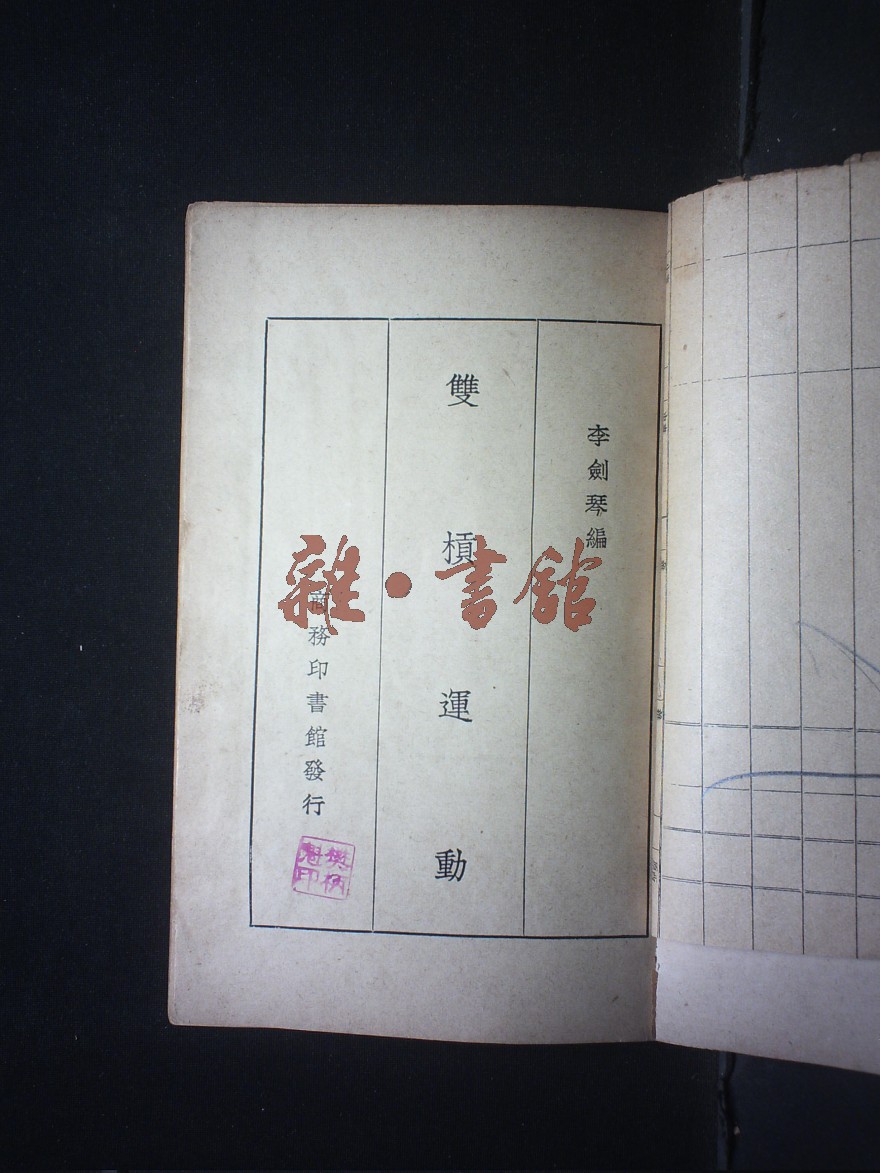 李劍琴編
雙槓運動
商務印書館發行
雜·書館